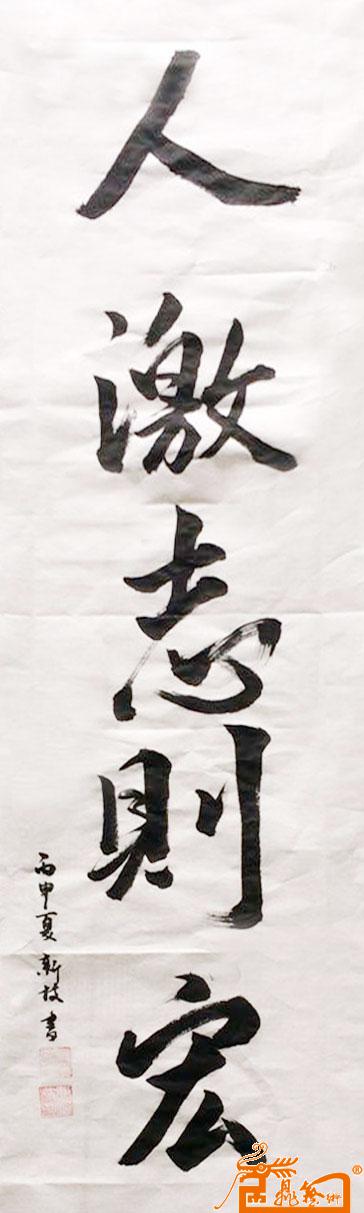 人激志則宏
丙申夏新枝書